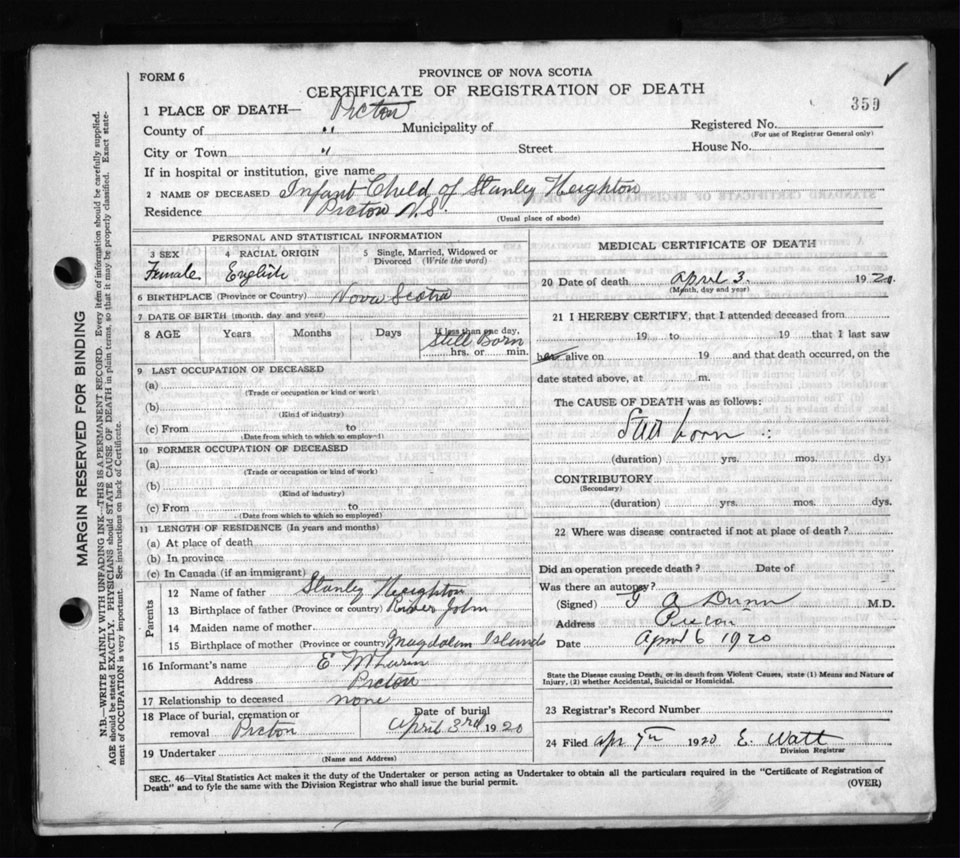 PROVINCE OF NOVA SCOTIA
FORM 6
CERTIFICATE OF REGISTRATION OF DEATH
359
1 PLACE OF DEATH— Pictou
County of " Municipality of Registered No.
(For use of Registrar General only)
City or Town " Street House No.
If in hospital or institution, give name
2 NAME OF DECEASED Infant Child of Stanley Heighton
Residence Pictou N.S.
(Usual place of abode)
PERSONAL AND STATISTICAL INFORMATION
3 SEX 4 RACIAL ORIGIN 5 Single, Married, Widowed or Divorced (Write the word)
Female English
6 BIRTHPLACE (Province or Country) Nova Scotia
7 DATE OF BIRTH (month, day and year)
8 AGE Years Months Days If less than one day,
Still Born
hrs. or min.
9 LAST OCCUPATION OF DECEASED
(a)
(Trade or occupation or kind of work)
(b)
(Kind of industry)
(c) From to
(Date from which to which so employed)
10 FORMER OCCUPATION OF DECEASED
(a)
(Trade or occupation or kind of work)
(b)
(Kind of industry)
(c) From to
(Date from which to which so employed)
11 LENGTH OF RESIDENCE (In years and months)
(a) At place of death
(b) In province
(c) In Canada (if an immigrant)
Parents
12 Name of father Stanley Heighton
13 Birthplace of father (Province or country) River John
14 Maiden name of mother
15 Birthplace of mother (Province or country) Magdalen Islands
16 Informant's name E
Address Pictou
17 Relationship to deceased none
18 Place of burial, cremation or removal Pictou
Date of burial April 3rd 1920
19 Undertaker
(Name and Address)
MEDICAL CERTIFICATE OF DEATH
20 Date of death April 3. 1920.
(Month, day and year)
21 I HEREBY CERTIFY, that I attended deceased from
19 to 19 that I last saw
alive on 19 and that death occurred, on the
date stated above, at m.
The CAUSE OF DEATH was as follows:
Still born
(duration) yrs. mos. dys.
CONTRIBUTORY
(Secondary)
(duration) yrs. mos. dys.
22 Where was disease contracted if not at place of death?
Did an operation precede death? Date of
Was there an autopsy?
(Signed) A Dunn M.D.
Address Pictou
Date April 6 1920
State the Disease causing Death, or in death from Violent Causes, state (1) Means and Nature of
Injury, (2) whether Accidental, Suicidal or Homicidal.
23 Registrar's Record Number
24 Filed Apr 7th 1920 E. Watt
Division Registrar
SEC. 46—Vital Statistics Act makes it the duty of the Undertaker or person acting as Undertaker to obtain all the particulars required in the "Certificate of Registration of
Death" and to fyle the same with the Division Registrar who shall issue the burial permit.
(OVER)
MARGIN RESERVED FOR BINDING
N.B.—WRITE PLAINLY WITH UNFADING INK—THIS IS A PERMANENT RECORD. Every item of information should be carefully supplied.
AGE should be stated EXACTLY. PHYSICIANS should STATE CAUSE OF DEATH in plain terms, so that it may be properly classified. Exact state-
ment of OCCUPATION is very important. See instructions on back of Certificate.